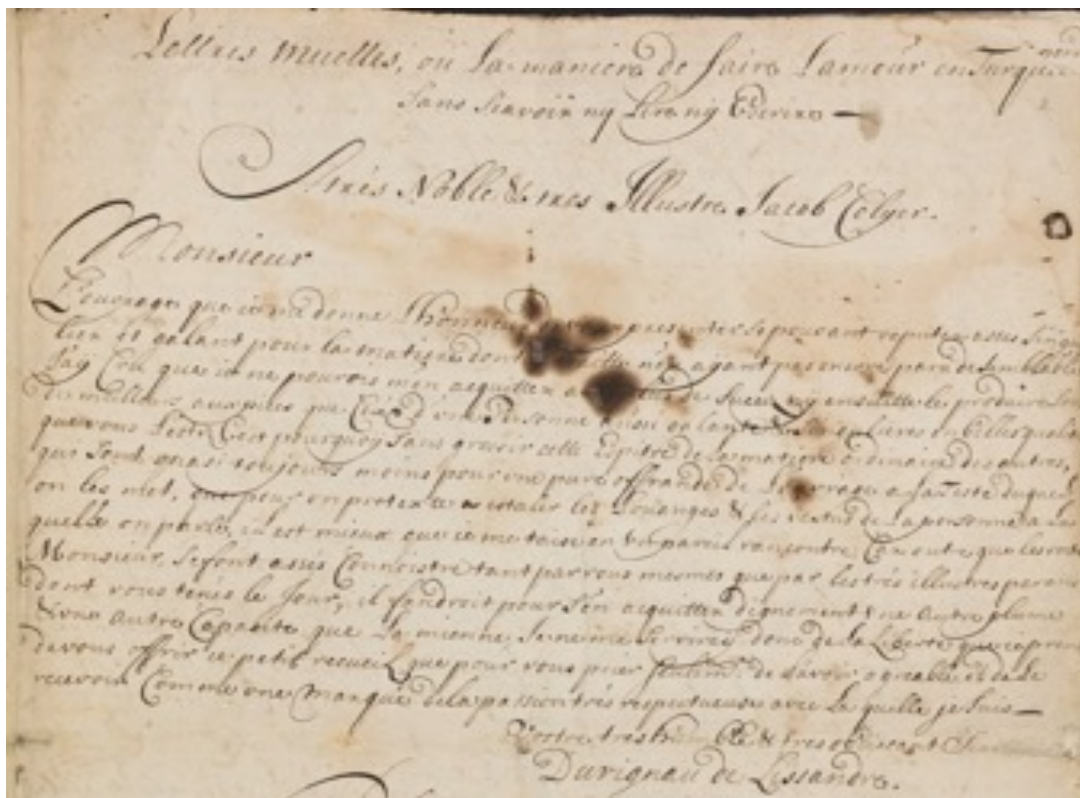 Lettres Muettes, ou La maniere de faire Lamour en Turquie
sans scavoir ny Lire ny Ecrire —
tres Noble & tres Illustre Jacob Colyer.
Monsieur
L'ouvrage que ie me donne L'honneur presenter se pouvant reputer assés singu
lier et galant pour la matiere dont n'en ayant pas encore paru de semblable
Jay Cru que ie ne pouvois m'en acquitter ny en suitte le produire sous
de meilleurs auspices que Ceux d'une Personne aussi galante en belles qualités
que vous l'estes C'est pourquoy sans grossir cette Epitre de la matiere ordinaire des autres,
qui sont quasi toujours moins pour une pure offrande de L'ouvrage a
on les met, que pour un pretexte a estaler les Loüanges & les vertus de La personne a la
quelle on parle, il est mieux que ie me taise en un pareil rencontre Car outre que les vostres
Monsieur, se font assés Connoistre tant par vous mesmes que par les trés illustres parens
dont vous tenés le Jour, il faudroit pour s'en acquitter dignement une autre plume
& une autre Capacité que La mienne Je ne me serviray donc de la Liberté que ie prens
de vous offrir ce petit recueil que pour vous prier de L'avoir agreable et de le
recevoir Comme une marque de la passion trés respectueuse avec La quelle je suis —
Vostre tres humble & tres obeissant
Duvignau de Lissandre.